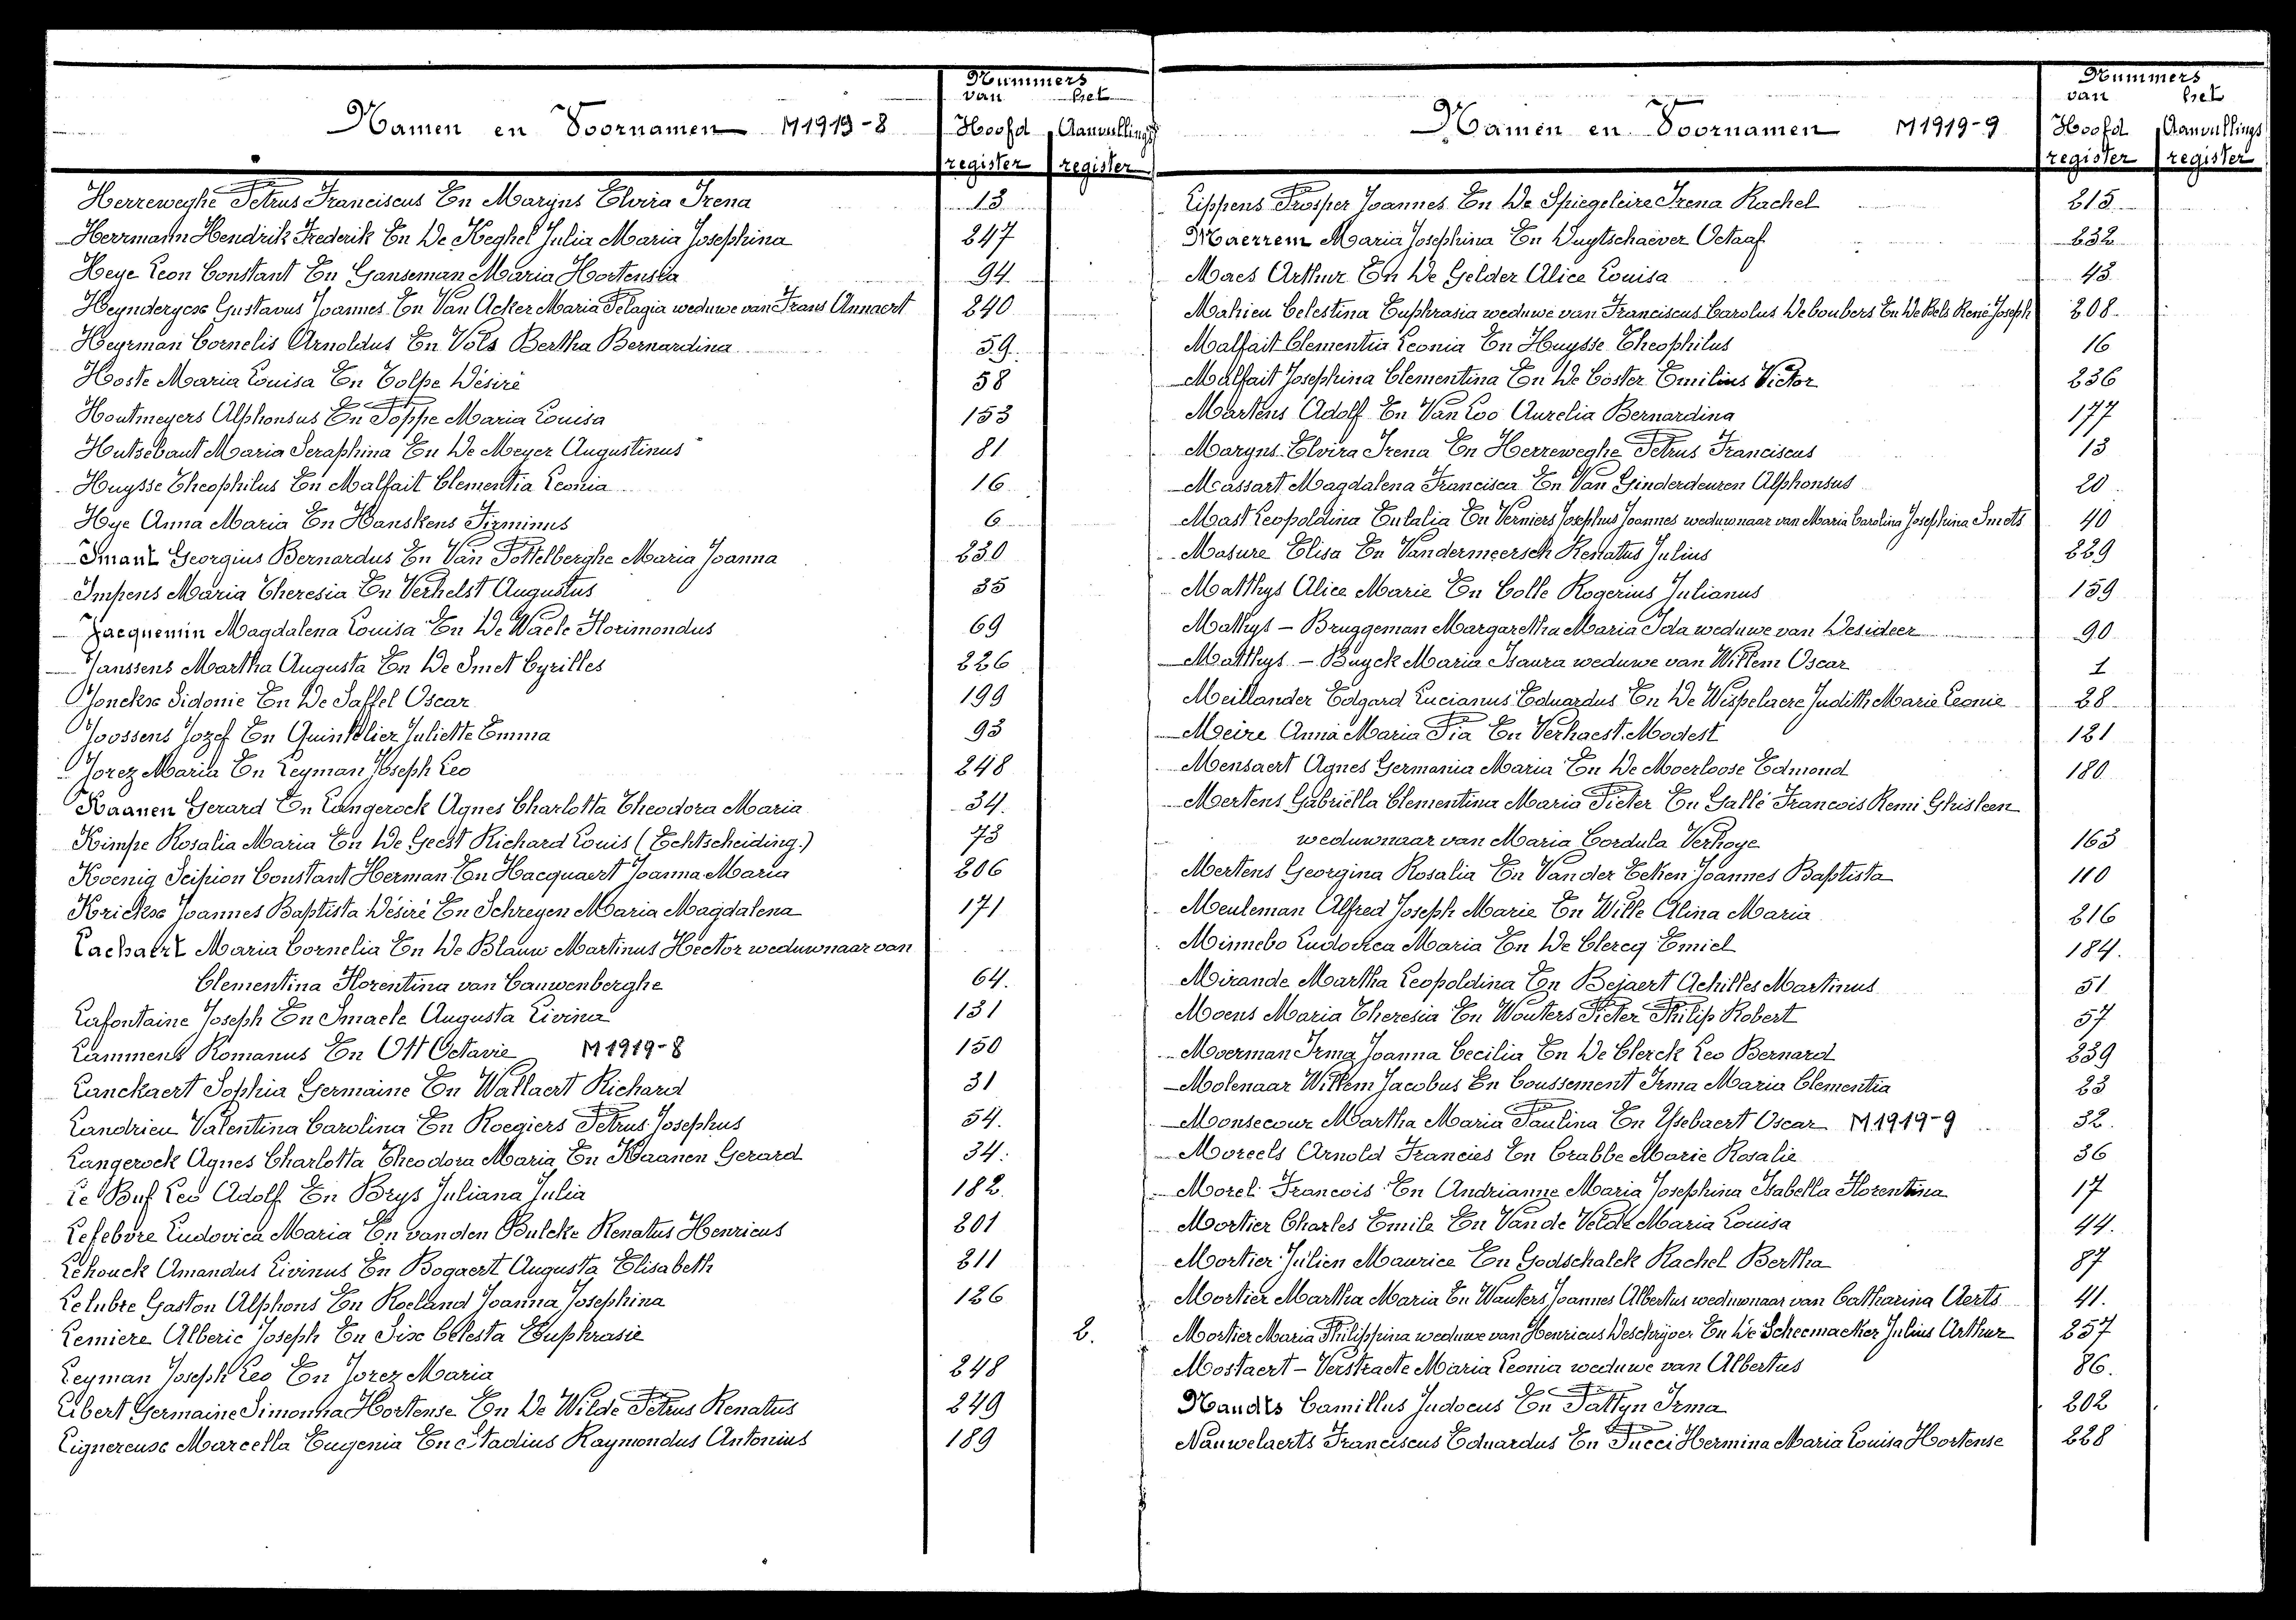 Nummers
van het
Namen en Voornamen M1919-8 Hoofd Aanvullings
register register
Herreweghe Petrus Franciscus En Maryns Elvira Irena 13
Herrmann Hendrik Frederik En De Keghel Julia Maria Josephina 247
Heye Leon Constant En Ganseman Maria Hortensia 94
Heynderycx Gustavus Joannes En Van Acker Maria Pelagia weduwe van Frans Annaert 240
Heyrman Cornelis Arnoldus En Vols Bertha Bernardina 59
Hoste Maria Louisa En Colpe Désiré 58
Houtmeyers Alphonsus En Poppe Maria Louisa 153
Hutsebaut Maria Seraphina En De Meyer Augustinus 81
Huysse Theophilus En Malfait Clementia Leonia 16
Hye Anna Maria En Hanskens Firminus 6
Imant Georgius Bernardus En Van Pottelberghe Maria Joanna 230
Impens Maria Theresia En Verhelst Augustus 35
Jacquemin Magdalena Louisa En De Waele Florimondus 69
Janssens Martha Augusta En De Smet Cyrilles 226
Jonckx Sidonie En De Saffel Oscar 199
Joossens Jozef En Quintelier Juliette Emma 93
Jorez Maria En Leyman Joseph Leo 248
Kaanen Gerard En Langerock Agnes Charlotta Theodora Maria 34.
Kimpe Rosalia Maria En De Geest Richard Louis (Echtscheiding.) 73
Koenig Scipion Constant Herman En Hacquaert Joanna Maria 206
Krickx Joannes Baptista Désiré En Schreyen Maria Magdalena 171
Lachaert Maria Cornelia En De Blauw Martinus Hector weduwnaar van
Clementina Florentina van Cauwenberghe 64.
Lafontaine Joseph En Smaele Augusta Livina 131
Lammens Romanus En Ott Octavie M1919-8 150
Lanckaert Sophia Germaine En Wallaert Richard 31
Landrieu Valentina Carolina En Roegiers Petrus Josephus 54.
Langerock Agnes Charlotta Theodora Maria En Kaanen Gerard 34.
Le Buf Leo Adolf En Brys Juliana Julia 182
Lefebvre Ludovica Maria En vanden Bulcke Renatus Henricus 201
Lehouck Amandus Livinus En Bogaert Augusta Elisabeth 211
Lelubre Gaston Alphons En Roeland Joanna Josephina 126
Lemiere Alberic Joseph En Six Celesta Euphrasie 2.
Leyman Joseph Leo En Jorez Maria 248
Libert Germaine Simonna Hortense En De Wilde Petrus Renatus 249
Lignereuse Marcella Eugenia En Stadius Raymondus Antonius 189
Nummers
van het
Namen en Voornamen M1919-9 Hoofd Aanvullings
register register
Lippens Prosper Joannes En De Spiegeleire Irena Rachel 215
Maerrem Maria Josephina En Duytschaever Octaaf 232
Maes Arthur En De Gelder Alice Louisa 43
Mahieu Celestina Euphrasia weduwe van Franciscus Carolus Deboubers En De Bels René Joseph 208
Malfait Clementia Leonia En Huysse Theophilus 16
Malfait Josephina Clementina En De Coster Emilius Victor 236
Martens Adolf En Van Loo Aurelia Bernardina 177
Maryns Elvira Irena En Herreweghe Petrus Franciscus 13
Massart Magdalena Francisca En Van Ginderdeuren Alphonsus 20
Mast Leopoldina Eulalia En Verniers Josephus Joannes weduwnaar van Maria Carolina Josephina Smets 40
Masure Elisa En Vandermeersch Renatus Julius 229
Matthys Alice Marie En Colle Rogerius Julianus 159
Mathys - Bruggeman Margaretha Maria Ida weduwe van Desideer 90
Matthys - Buyck Maria Isaura weduwe van Willem Oscar 1
Meillander Edgard Lucianus Eduardus En De Wispelaere Judith Marie Leonie 28
Meire Anna Maria Pia En Verhaest Modest 121
Mensaert Agnes Germania Maria En De Moerloose Edmond 180
Mertens Gabriëlla Clementina Maria Pieter En Gallé Francois Remi Ghisleen
weduwnaar van Maria Cordula Verhoye 163
Mertens Georgina Rosalia En Vander Eeken Joannes Baptista 110
Meuleman Alfred Joseph Marie En Wille Alina Maria 216
Minnebo Ludovica Maria En De Clercq Emiel 184.
Mirande Martha Leopoldina En Bejaert Achilles Martinus 51
Moens Maria Theresia En Wouters Pieter Philip Robert 57
Moerman Irma Joanna Cecilia En De Clerck Leo Bernard 239
Molenaar Willem Jacobus En Coussement Irma Maria Clementia 23
Monsecour Martha Maria Paulina En Ysebaert Oscar M1919-9 32.
Moreels Arnold Francies En Crabbe Marie Rosalie 36
Morel Francois En Andrianne Maria Josephina Isabella Florentina 17
Mortier Charles Emile En Van de Velde Maria Louisa 44.
Mortier Julien Maurice En Godschalck Rachel Bertha 87
Mortier Martha Maria En Wauters Joannes Albertus weduwnaar van Catharina Aerts 41.
Mortier Maria Philippina weduwe van Henricus Deschryver En De Scheemacker Julius Arthur 257
Mostaert - Verstraete Maria Leonia weduwe van Albertus 86.
Naudts Camillus Judocus En Pattyn Irma 202
Nauwelaerts Franciscus Eduardus En Pucci Hermina Maria Louisa Hortense 228